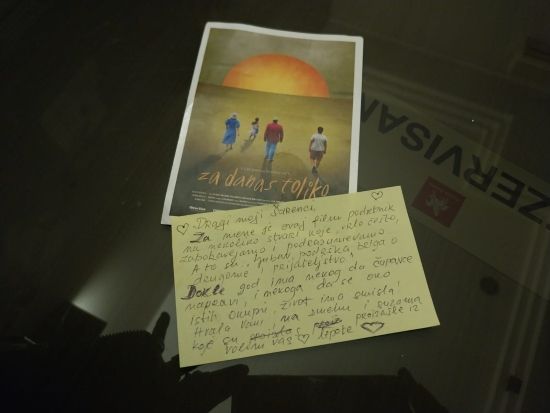 za danas toliko
ZERVISAN
Dragi moji Šarenci,
Za mene je ovaj film podsetnik
na nekoliko stvari koje, vrlo često,
zaboravljamo i podrazumevamo
A to su: ljubav, podrška, briga o
drugome i prijateljstvo!
Dokle god ima nekog da čupavce
napravi, i nekoga da se oko
istih okupi, život ima smisla!
Hvala vam na smehu i suzama
koje su proizašle iz
Volim vas lepote